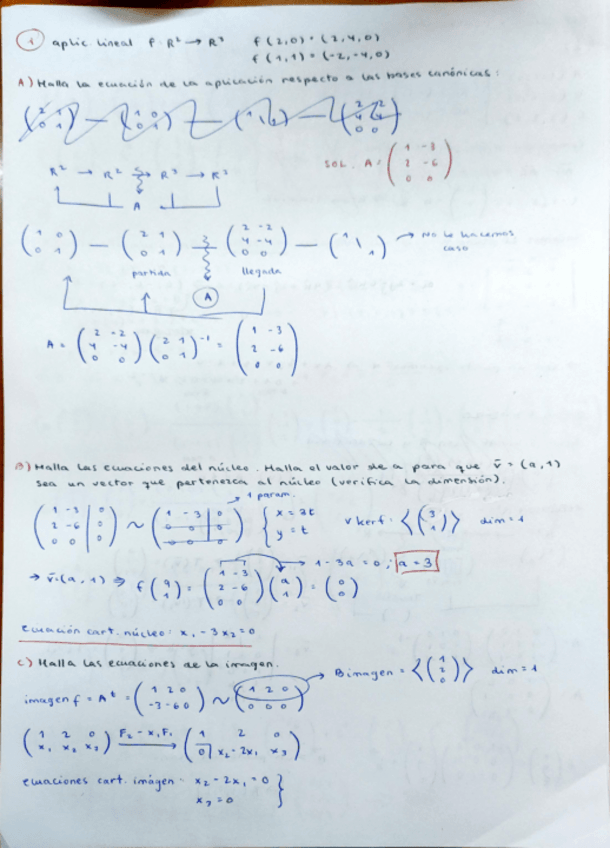 1 aplic. lineal f: R² → R³ f(2,0) = (2,4,0)
f(1,1) = (-2,-4,0)
A) Halla la ecuación de la aplicación respecto a las bases canónicas:
SOL. A = (1 -3; 2 -6; 0 0)
R² → R² → R³ → R³
A
(1 0; 0 1) — (2 1; 0 1) (2 -2; 4 -4; 0 0) — (1 \ 1) → No le hacemos caso
partida llegada
A
A = (2 -2; 4 -4; 0 0) (2 1; 0 1)⁻¹ = (1 -3; 2 -6; 0 0)
B) Halla las ecuaciones del núcleo. Halla el valor de a para que v̄ = (a,1)
sea un vector que pertenezca al núcleo (verifica la dimensión).
→ 1 param.
(1 -3 | 0; 2 -6 | 0; 0 0 | 0) ~ (1 -3 | 0; 0 0 | 0; 0 0 | 0) { x = 3t; y = t kerf: <(3; 1)> dim = 1
→ v̄ = (a,1) ⇒ f(a; 1) = (1 -3; 2 -6; 0 0) (a; 1) = (0; 0) → 1 - 3a = 0; a = 3
ecuación cart. núcleo: x₁ - 3x₂ = 0
C) Halla las ecuaciones de la imagen.
imagen f = Aᵗ = (1 2 0; -3 -6 0) ~ (1 2 0; 0 0 0) → Bimagen = <(1; 2; 0)> dim = 1
(1 2 0; x₁ x₂ x₃) F₂ - x₁F₁ → (1 2 0; 0 x₂-2x₁ x₃)
ecuaciones cart. imágen: x₂ - 2x₁ = 0
x₃ = 0 }